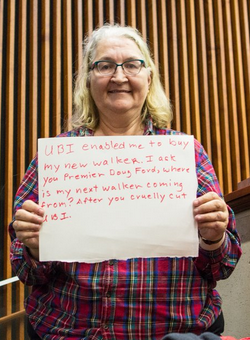 UBI enabled me to buy
my new walker. I ask
you Premier Doug Ford, where
is my next walker coming
from? After you cruelly cut
UBI.